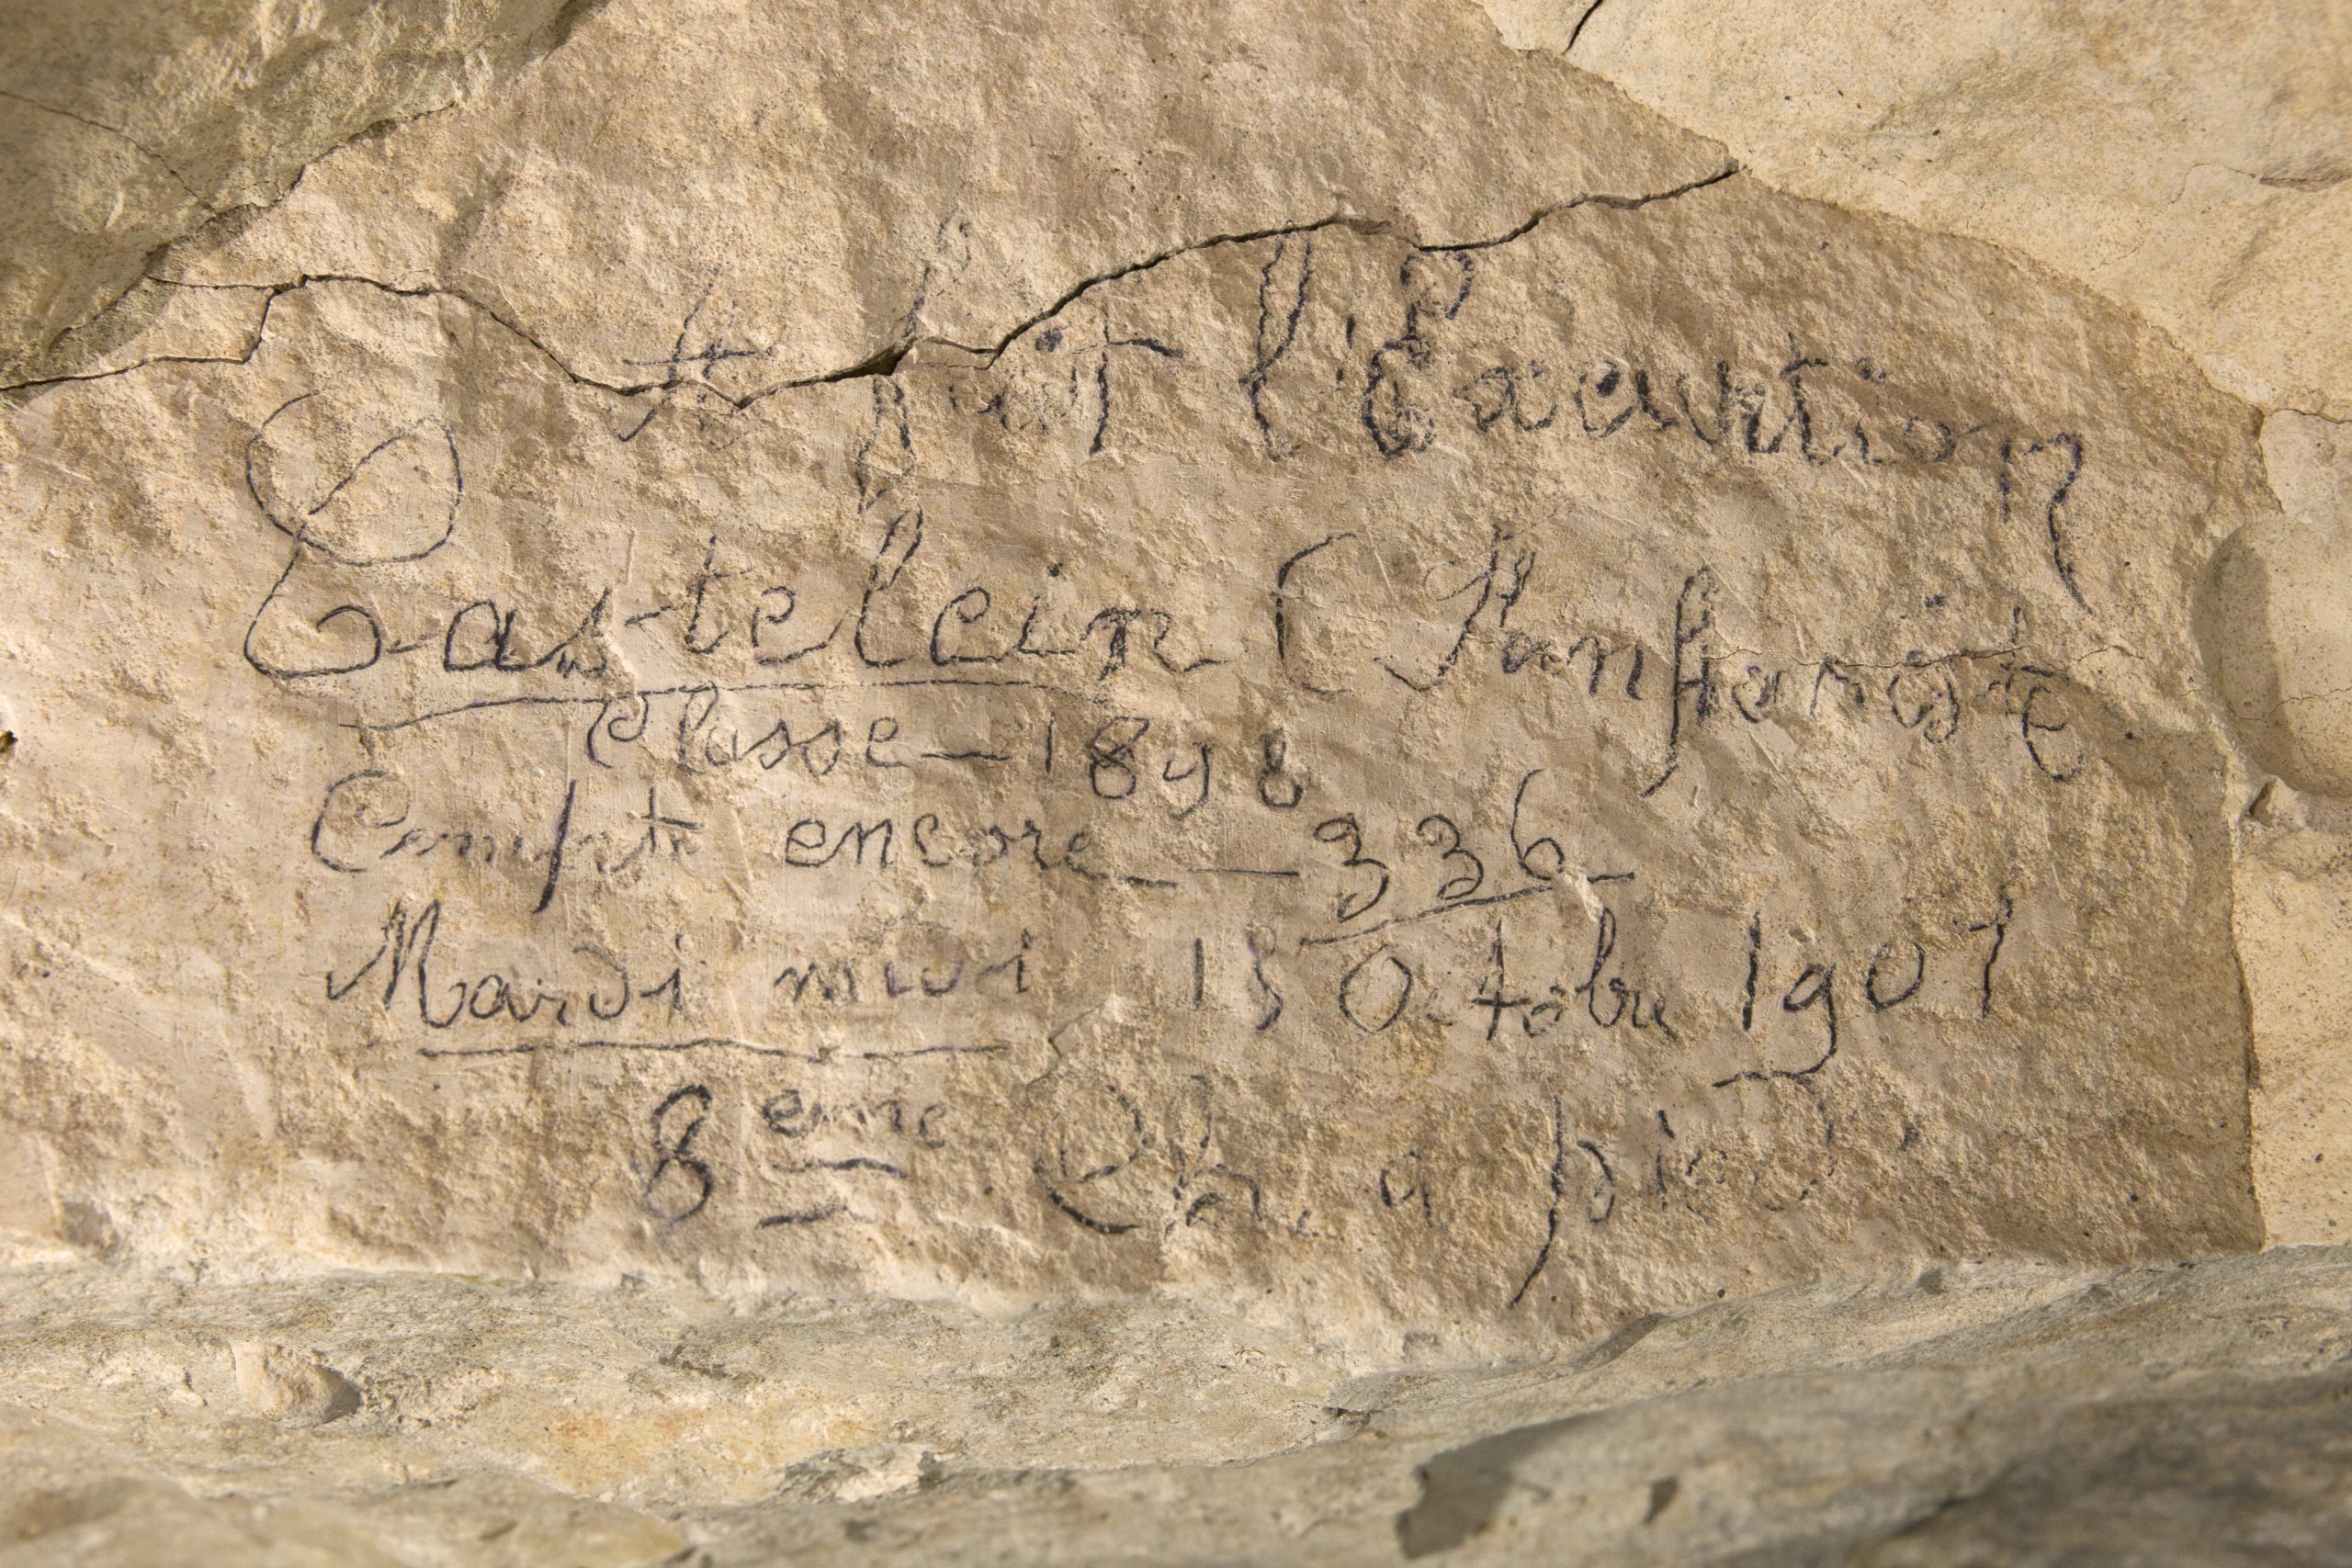 A fait l'Excurtion
Castelein (Fanfariste
Classe - 1898
Compte encore - 336
Mardi midi 15 Octobre 1901
8eme Ch. a pied